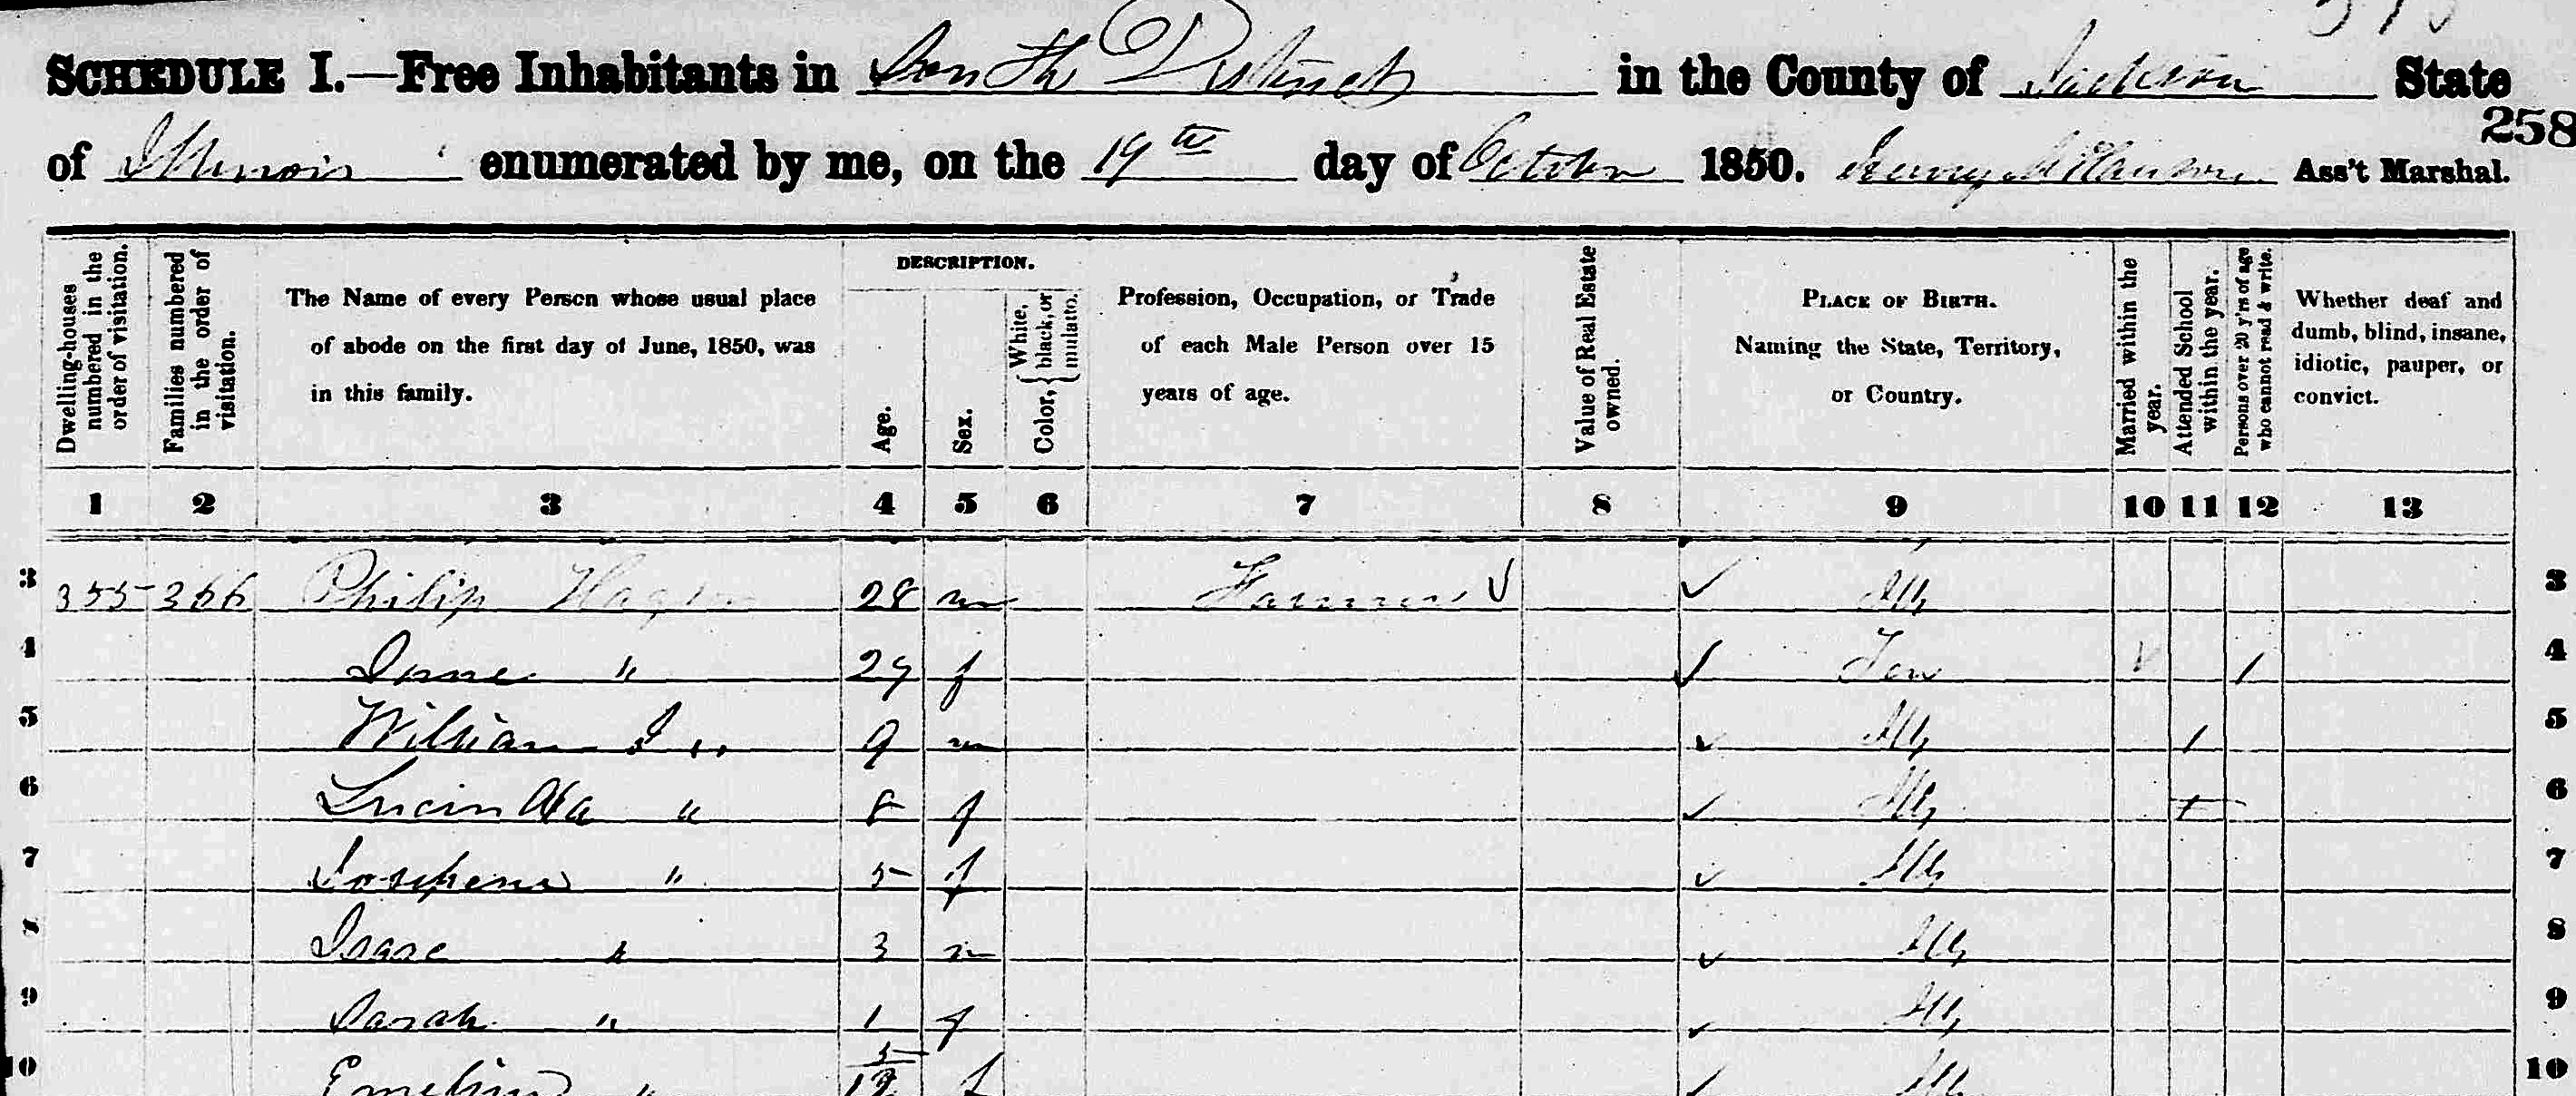 SCHEDULE I.—Free Inhabitants in South District in the County of Jackson State
258
of Illinois enumerated by me, on the 19th day of October 1850. Henry Ass't Marshal.
Dwelling-houses numbered in the order of visitation.
Families numbered in the order of visitation.
The Name of every Person whose usual place of abode on the first day of June, 1850, was in this family.
DESCRIPTION.
Age.
Sex.
Color, { White, black, or mulatto.
Profession, Occupation, or Trade of each Male Person over 15 years of age.
Value of Real Estate owned.
PLACE OF BIRTH. Naming the State, Territory, or Country.
Married within the year.
Attended School within the year.
Persons over 20 y'rs of age who cannot read & write.
Whether deaf and dumb, blind, insane, idiotic, pauper, or convict.
1 2 3 4 5 6 7 8 9 10 11 12 13
3 355 366 Philip 28 m Farmer ✓ ✓ Ills 3
4 " 29 f ✓ Ten ✓ / 4
5 William J " 9 m ✓ Ills / 5
6 Lucinda " 8 f ✓ Ills 6
7 " 5 f ✓ Ills 7
8 Isaac " 3 m ✓ Ills 8
9 Sarah " 1 f ✓ Ills 9
10 " 5/12 f ✓ Ills 10